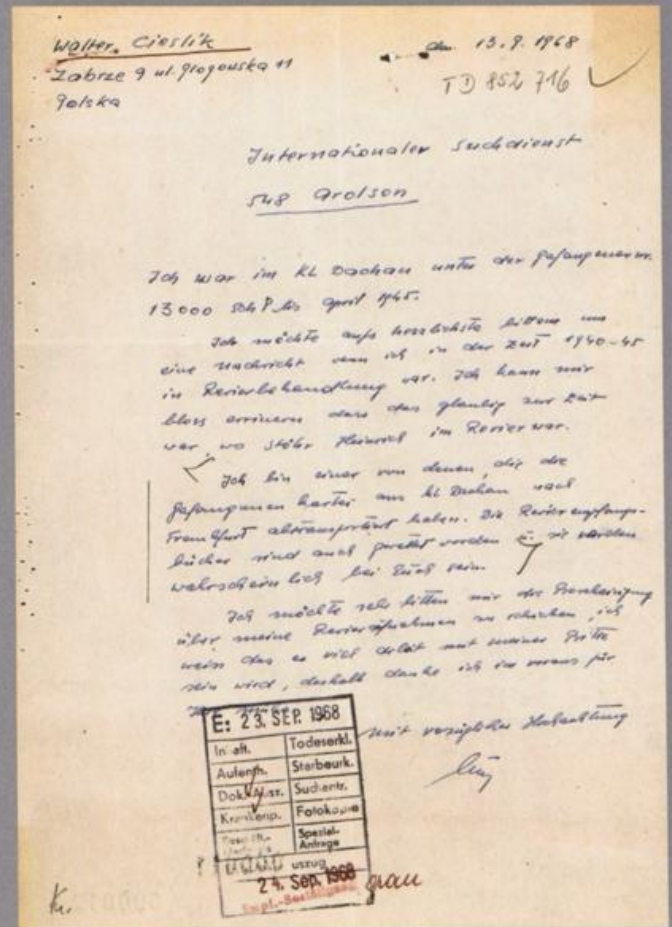 Walter Cieslik
Zabrze 9 ul. Glogowska 11
Polska
den 13.9.1968
TD 852 716
Internationaler Suchdienst
548 Arolsen
Ich war im KL Dachau unter der Gefangenennr.
13000 Sch P. bis April 1945.
Ich möchte aufs herzlichste bitten um
eine Nachricht wann ich in der Zeit 1940-45
in Revierbehandlung war. Ich kann mir
bloss errinern dass das glaubig zur Zeit
war, wo Stöhr Heinrich im Revier war.
Ich bin einer von denen, die die
Gefangenen kartei aus KL Dachau nach
Frankfurt abtransportiert haben. Die Revierempfangs-
bücher sind auch gerettet worden sie werden
wahrscheinlich bei Euch sein.
Ich möchte sehr bitten mir die Bescheinigung
über meine Revieraufnahmen zu schicken, ich
weiss das es viel Arbeit mit meiner Bitte
sein wird, deshalb danke ich im voraus für
mit vorzüglicher Hochachtung
E: 23. SEP. 1968
Inhaft. Todeserkl.
Aufenth. Sterbeurk.
Dok. Ausz. Suchantr.
Krankenp. Fotokopie
Spezial-
Anfrage
uszug
24. Sep. 1968
Empf.-Bestätigung
grau
Kr.